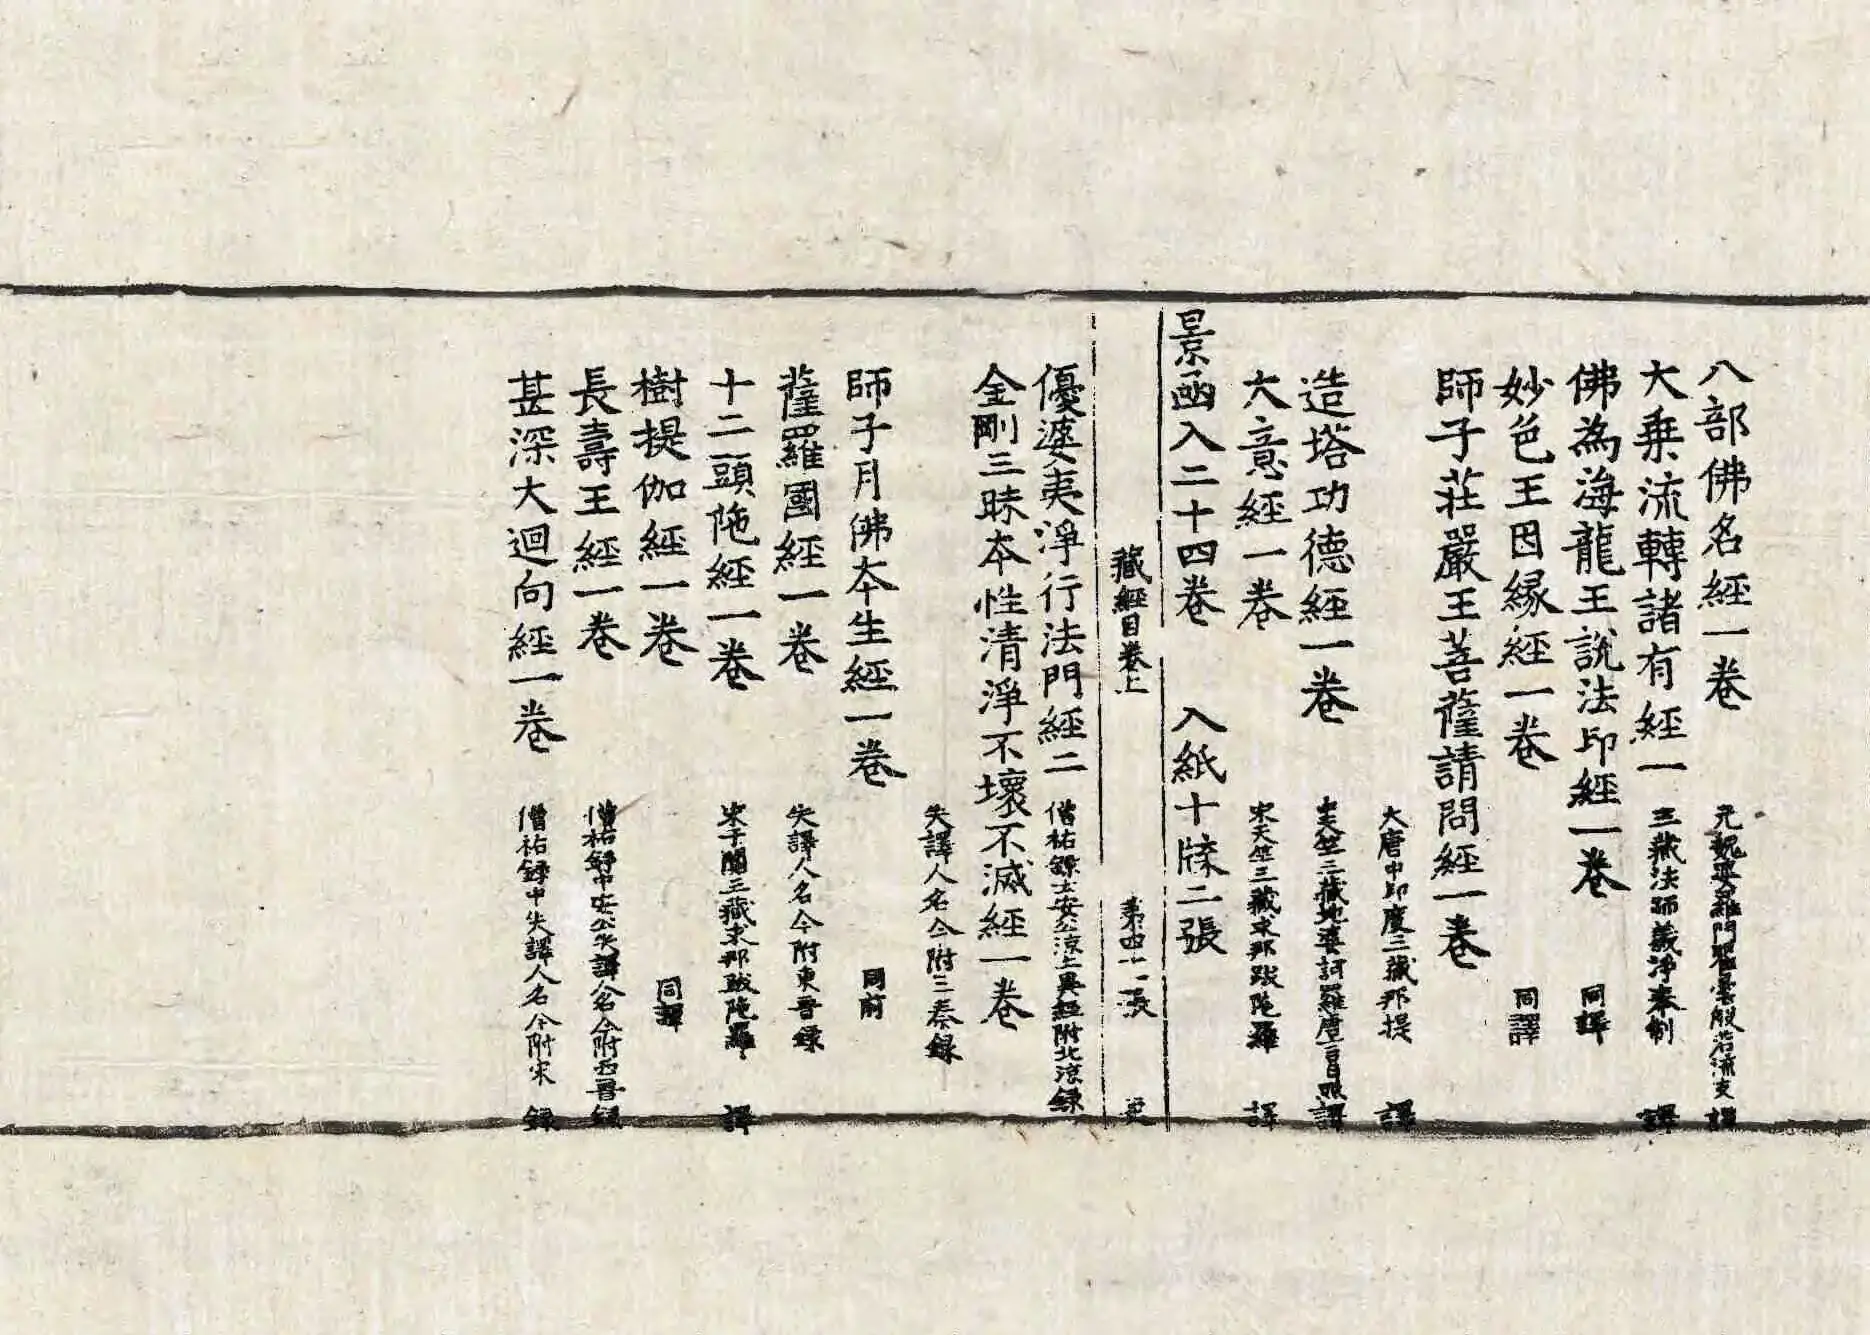 八部佛名經一卷 元魏婆羅門瞿曇般若流支譯
大乗流轉諸有經一 三藏法師義淨奉制譯
佛為海龍王說法印經一卷 同譯
妙色王因緣經一卷 同譯
師子莊嚴王菩薩請問經一卷
大唐中印度三藏那提譯
造塔功德經一卷 天竺三藏地婆訶羅唐言日照譯
大意經一卷 宋天竺三藏求那跋陀羅譯
景函入二十四卷 入紙十牒二張
藏經目卷上 第四十一張
優婆夷淨行法門經二 僧祐錄云安公涼土異經附北涼錄
金剛三昧本性清淨不壞不滅經一卷
失譯人名今附三秦録
師子月佛本生經一卷 同前
薩羅國經一卷 失譯人名今附東晉録
十二頭陁經一卷 宋于闐三藏求那跋陁羅譯
樹提伽經一卷 同譯
長壽王經一卷 僧祐録中安公失譯人名今附西晉録
甚深大迴向經一卷 僧祐録中失譯人名今附宋録